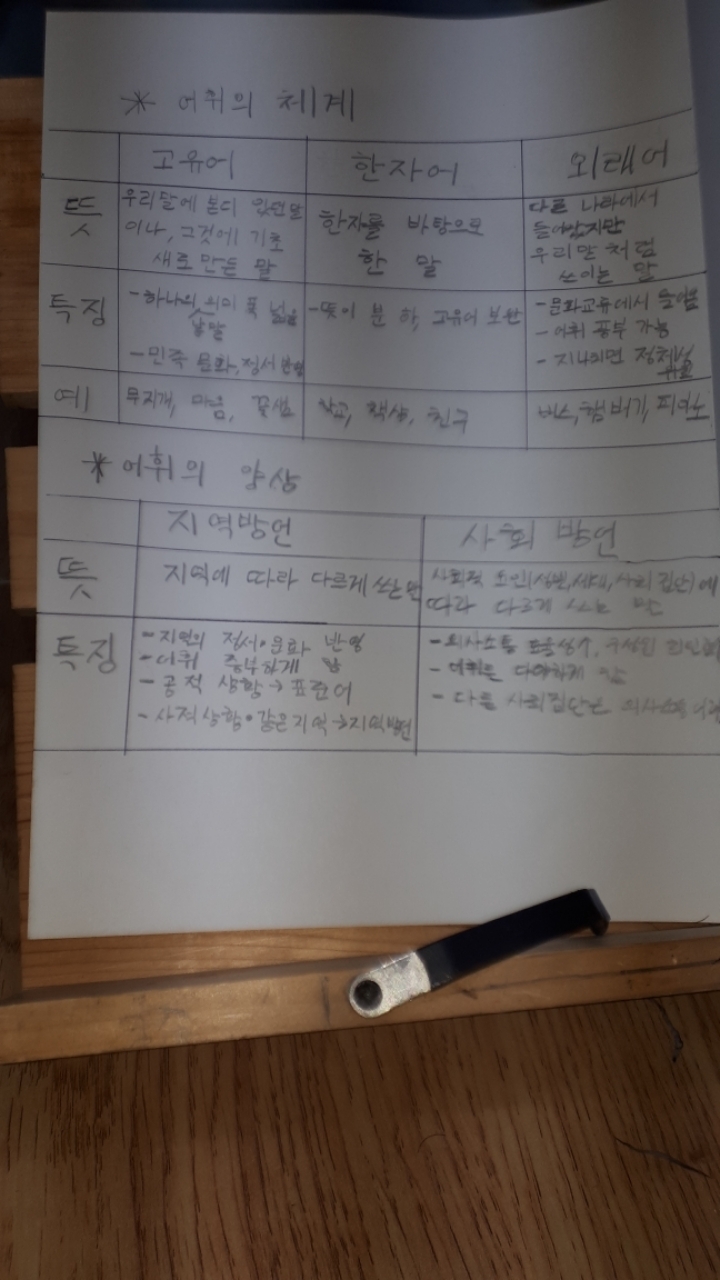 * 어휘의 체계
고유어 한자어 외래어
뜻
우리말에 본디 있던 말
이나, 그것에 기초
새로 만든 말
한자를 바탕으로
한 말
다른 나라에서
들어왔지만
우리말처럼
쓰이는 말
특징
- 하나의 의미 폭 넓음
낱말
- 민족 문화, 정서 반영
- 뜻이 분 하, 고유어 보완
- 문화교류에서 들어옴
- 어휘 풍부 가능
- 지나치면 정체성
예
무지개, 마음, 꽃샘
학교, 책상, 친구
버스, 햄버거, 피아노
* 어휘의 양상
지역방언 사회 방언
뜻
지역에 따라 다르게 쓰는 말
사회적 요인(성별, 세대, 사회 집단)에
따라 다르게 쓰는 말
특징
- 지역의 정서·문화 반영
- 어휘 풍부하게 함
- 공적 상황 → 표준어
- 사적상황·같은지역 → 지역방언
- 의사소통 효율성↑,
- 어휘를 다양하게 함
- 다른 사회집단은 의사소통